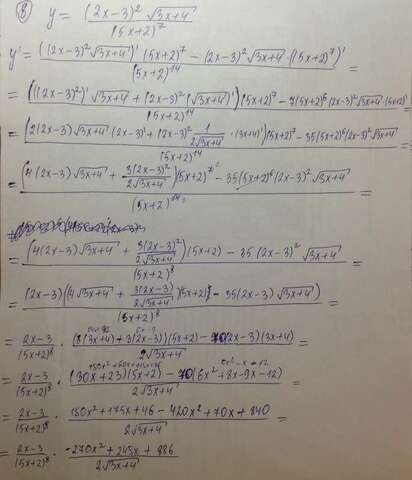 8) y = (2x-3)² √(3x+4) / (5x+2)⁷
y' = (((2x-3)² √(3x+4))' (5x+2)⁷ - (2x-3)² √(3x+4) · ((5x+2)⁷)') / (5x+2)¹⁴ =
= (((2x-3)²)' √(3x+4) + (2x-3)² (√(3x+4))')(5x+2)⁷ - 7(5x+2)⁶ (2x-3)² √(3x+4) · (5x+2)' / (5x+2)¹⁴ =
= (2(2x-3) √(3x+4) (2x-3)' + (2x-3)² 1/(2√(3x+4)) · (3x+4)')(5x+2)⁷ - 35(5x+2)⁶ (2x-3)² √(3x+4) / (5x+2)¹⁴ =
= (4(2x-3) √(3x+4) + 3(2x-3)²/(2√(3x+4)))(5x+2)⁷ - 35(5x+2)⁶ (2x-3)² √(3x+4) / (5x+2)¹⁴ =
= (4(2x-3) √(3x+4) + 3(2x-3)²/(2√(3x+4)))(5x+2) - 35(2x-3)² √(3x+4) / (5x+2)⁸ =
= (2x-3)((4√(3x+4) + 3(2x-3)/(2√(3x+4)))(5x+2) - 35(2x-3) √(3x+4)) / (5x+2)⁸ =
= (2x-3)/(5x+2)⁸ · ((8(3x+4)+3(2x-3))(5x+2) - 70(2x-3)(3x+4)) / (2√(3x+4)) =
= (2x-3)/(5x+2)⁸ · ((30x+23)(5x+2) - 70(6x²+8x-9x-12)) / (2√(3x+4)) =
= (2x-3)/(5x+2)⁸ · (150x²+175x+46-420x²+70x+840) / (2√(3x+4)) =
= (2x-3)/(5x+2)⁸ · (-270x²+245x+886) / (2√(3x+4))